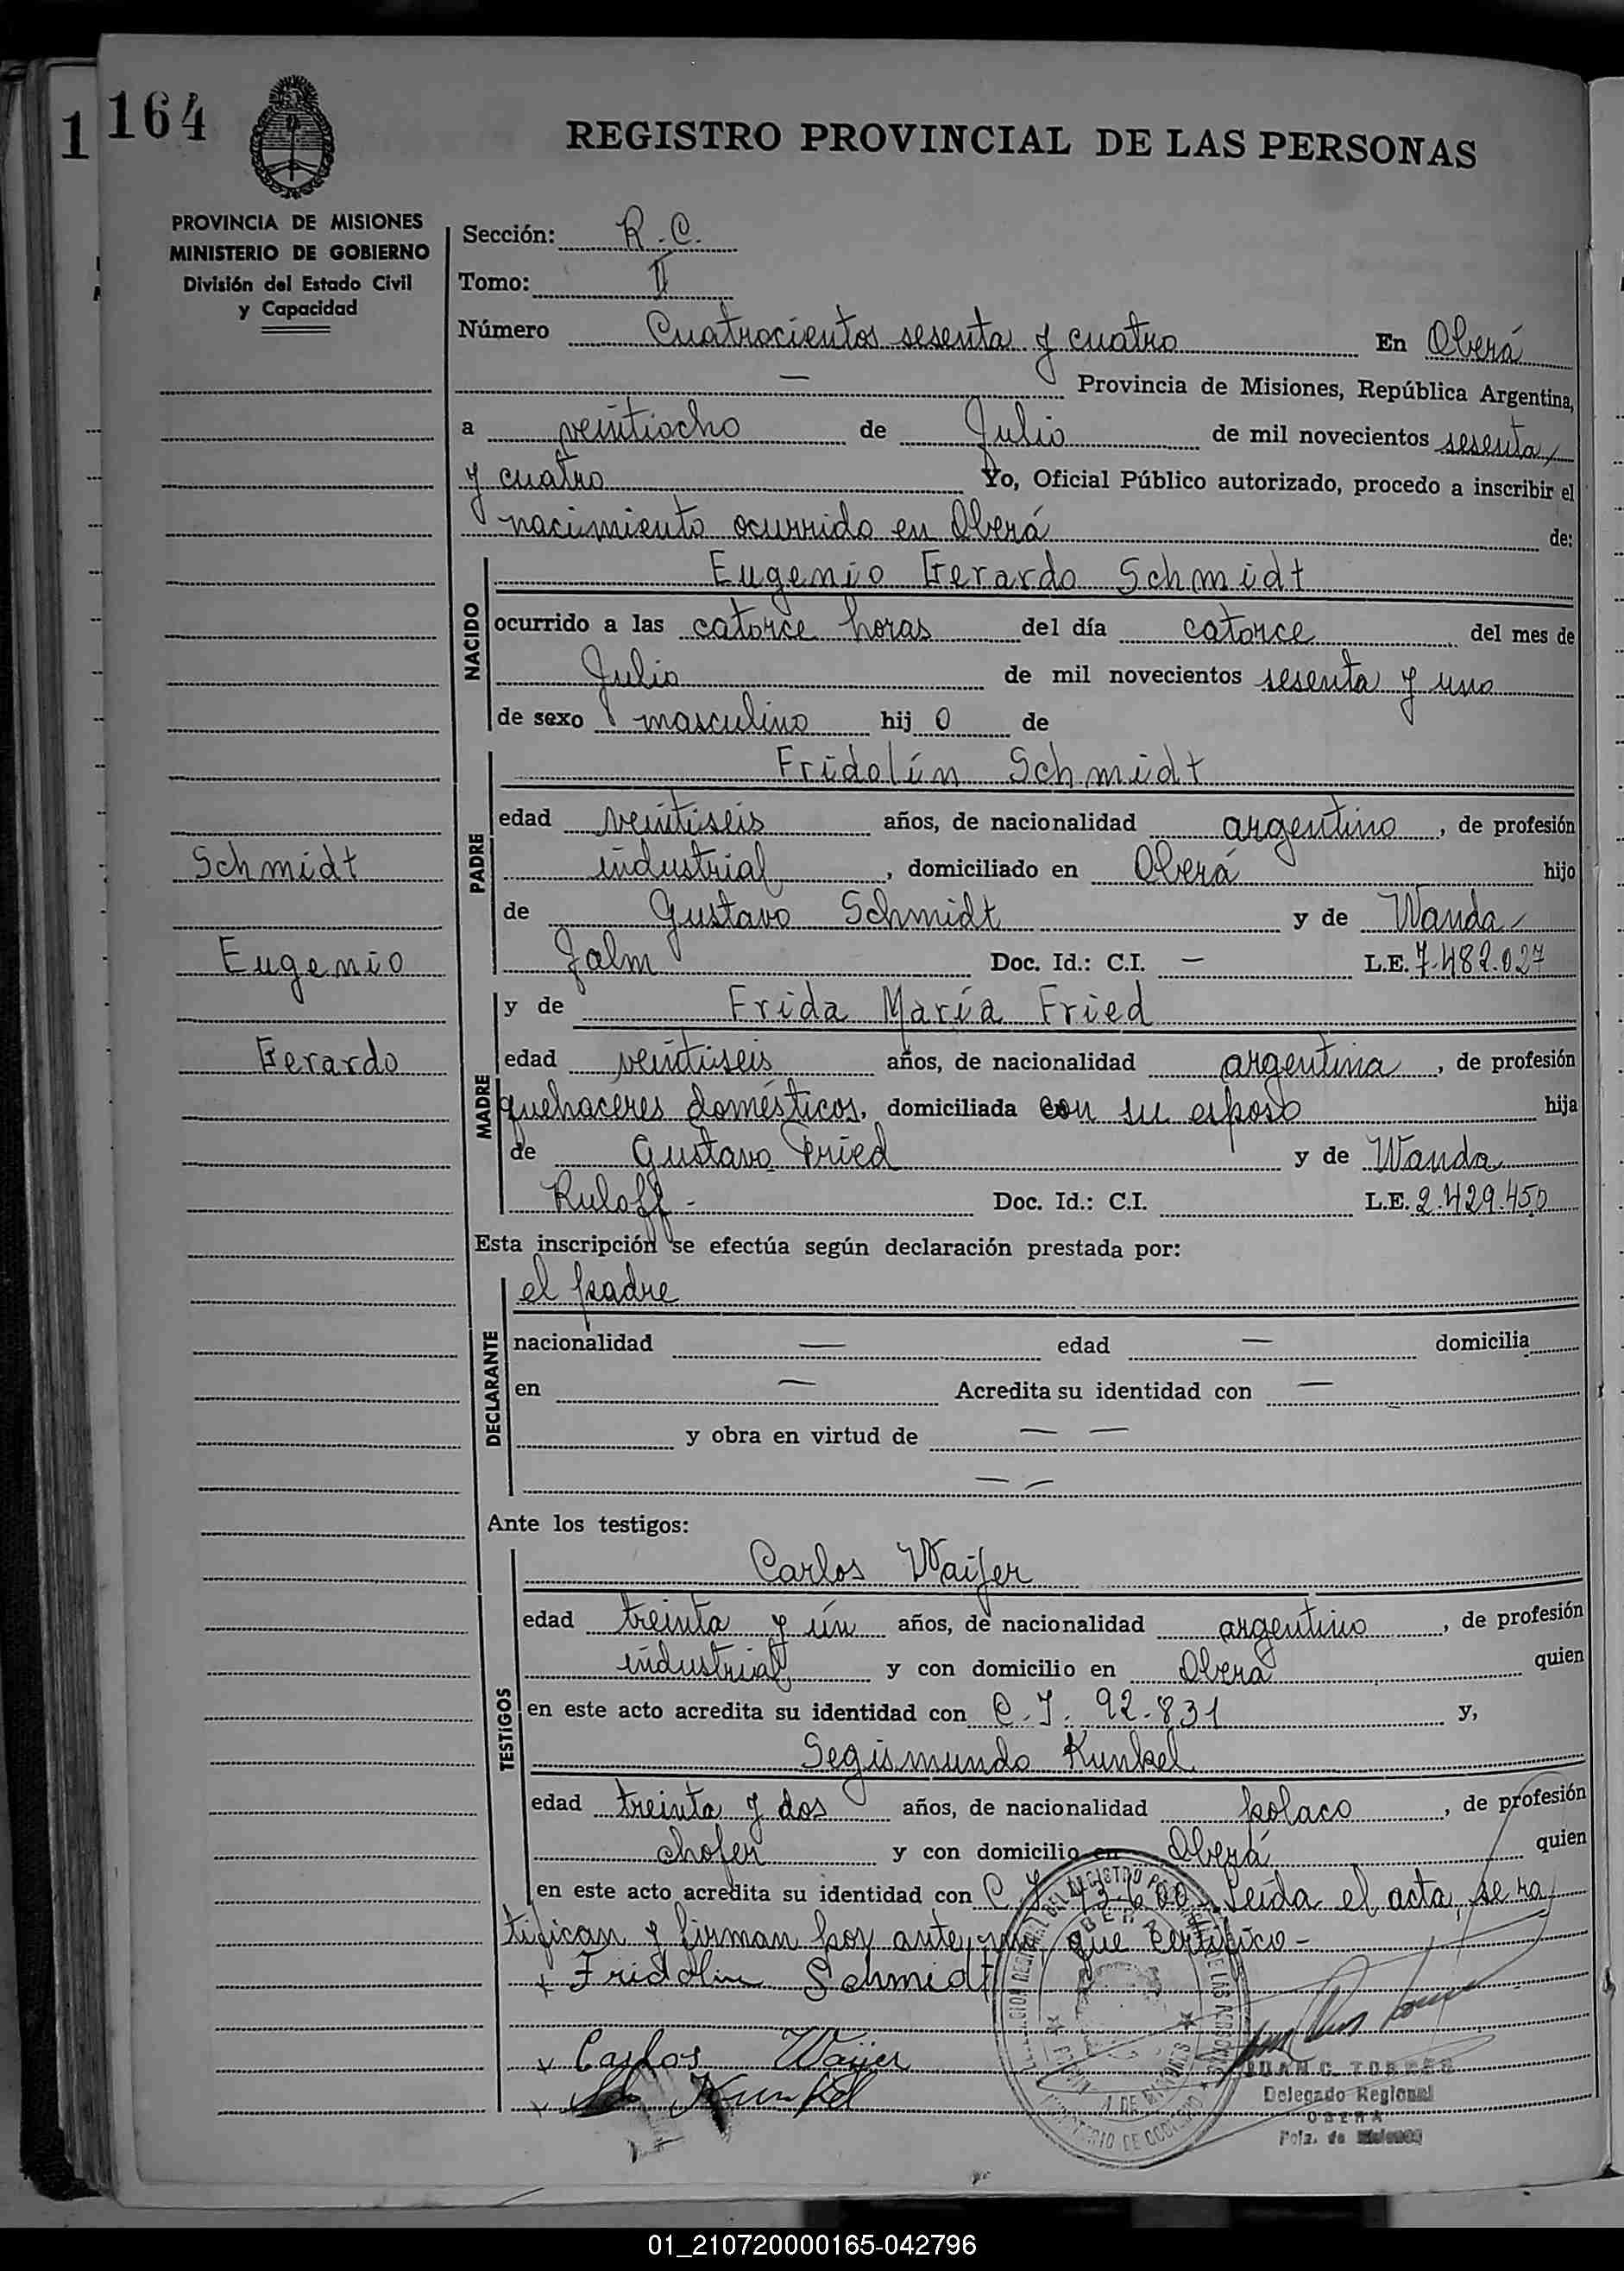 1 164
REGISTRO PROVINCIAL DE LAS PERSONAS
PROVINCIA DE MISIONES
MINISTERIO DE GOBIERNO
División del Estado Civil
y Capacidad
Sección: R.C.
Tomo: II
Número Cuatrocientos sesenta y cuatro En Oberá
— Provincia de Misiones, República Argentina,
a veintiocho de Julio de mil novecientos sesenta
y cuatro Yo, Oficial Público autorizado, procedo a inscribir el
nacimiento ocurrido en Oberá de:
NACIDO
Eugenio Gerardo Schmidt
ocurrido a las catorce horas del día catorce del mes de
Julio de mil novecientos sesenta y uno
de sexo masculino hijo de
PADRE
Fridolín Schmidt
edad veintiseis años, de nacionalidad argentino, de profesión
industrial, domiciliado en Oberá hijo
de Gustavo Schmidt y de Wanda
Jalm Doc. Id.: C.I. — L.E. 7.482.027
Schmidt
Eugenio
Gerardo
MADRE
y de Frida María Fried
edad veintiseis años, de nacionalidad argentina, de profesión
quehaceres domésticos, domiciliada con su esposo hija
de Gustavo Fried y de Wanda
Ruloff - Doc. Id.: C.I. L.E. 2.429.450
Esta inscripción se efectúa según declaración prestada por:
DECLARANTE
el padre
nacionalidad — edad — domicilia
en — Acredita su identidad con —
y obra en virtud de — —
— —
Ante los testigos:
TESTIGOS
Carlos Waijer
edad treinta y ún años, de nacionalidad argentino, de profesión
industrial y con domicilio en Oberá quien
en este acto acredita su identidad con C.I. 92.831 y,
Segismundo Kunkel
edad treinta y dos años, de nacionalidad polaco, de profesión
chofer y con domicilio en Oberá quien
en este acto acredita su identidad con C.I. Leída el acta, se ra
tifican y firman por ante mí, que certifico -
x Fridolin Schmidt
x Carlos Waijer
x Kunkel
JUAN C. TORRES
Delegado Regional
OBERA
Pcia. de Misiones
01_210720000165-042796